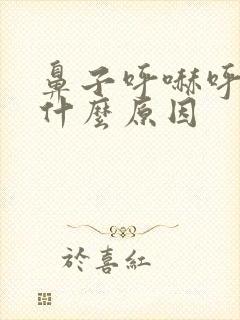 鼻子呼嚇呼
什麼原因
於喜紅